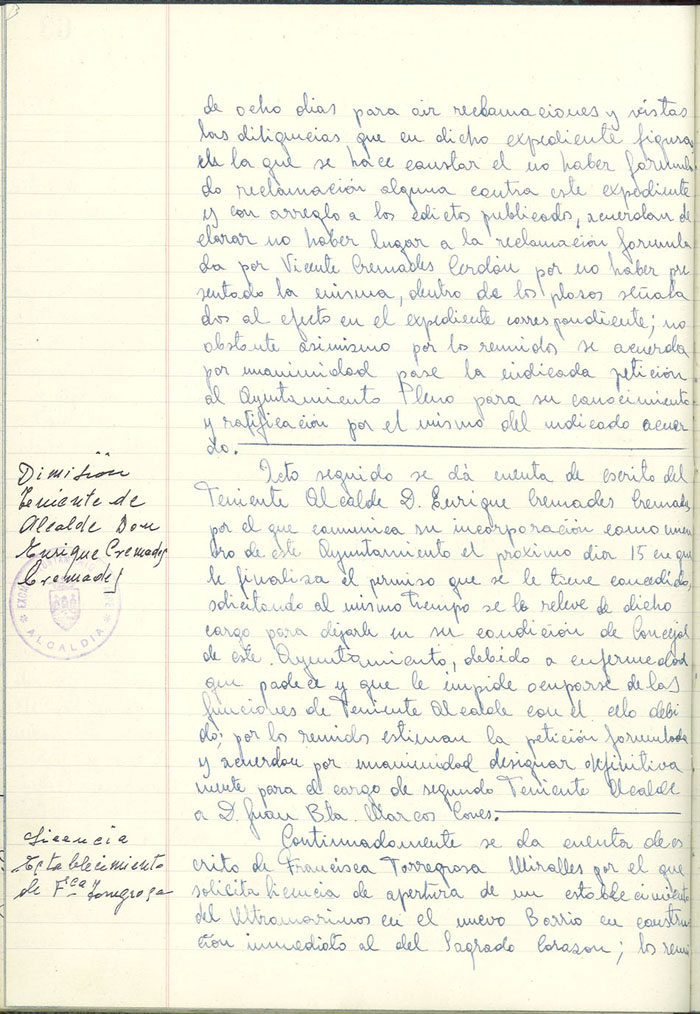 de ocho dias para oir reclamaciones y vistas
las diligencias que en dicho expediente figuran
en la que se hace constar el no haber formula
do reclamación alguna contra este expediente
y con arreglo a los edictos publicado, acuerdan de
clarar no haber lugar a la reclamación formula
da por Vicente Cremades Cerdán por no haber pre
sentado la misma, dentro de los plasos señala
dos al efecto en el expediente correspondiente; no
obstante asimismo por los reunidos se acuerda
por unanimidad pase la indicada petición
al Ayuntamiento Pleno para su conocimiento
y ratificación por el mismo del indicado acuer
do.
Dimisión
Teniente de
Alcalde Don
Enrique Cremades
Cremades
ALCALDIA
Acto seguido se dá cuenta de escrito del
Teniente Alcalde D. Enrique Cremades Cremades
por el que comunica su incorporación como miem
bro de este Ayuntamiento el próximo dia 15 en que
le finaliza el permiso que se le tiene concedido,
solicitando al mismo tiempo se le releve de dicho
cargo para dejarle en su condición de Concejal
de este Ayuntamiento, debido a enfermedad
que padece y que le impide ocuparse de las
funciones de Teniente Alcalde con el celo debi
do; por los reunidos estiman la petición formulada
y acuerdan por unanimidad designar definitiva
mente para el cargo de segundo Teniente Alcalde
a D. Juan Bta. Marcos Cones.
Licencia
Establecimiento
de Fca Torregrosa
Continuadamente se da cuenta de es
crito de Francisca Torregrosa Miralles por el que
solicita licencia de apertura de un establecimiento
del Ultramarinos en el nuevo Barrio en construc
ción inmediato al del Sagrado Corazon; los reuni